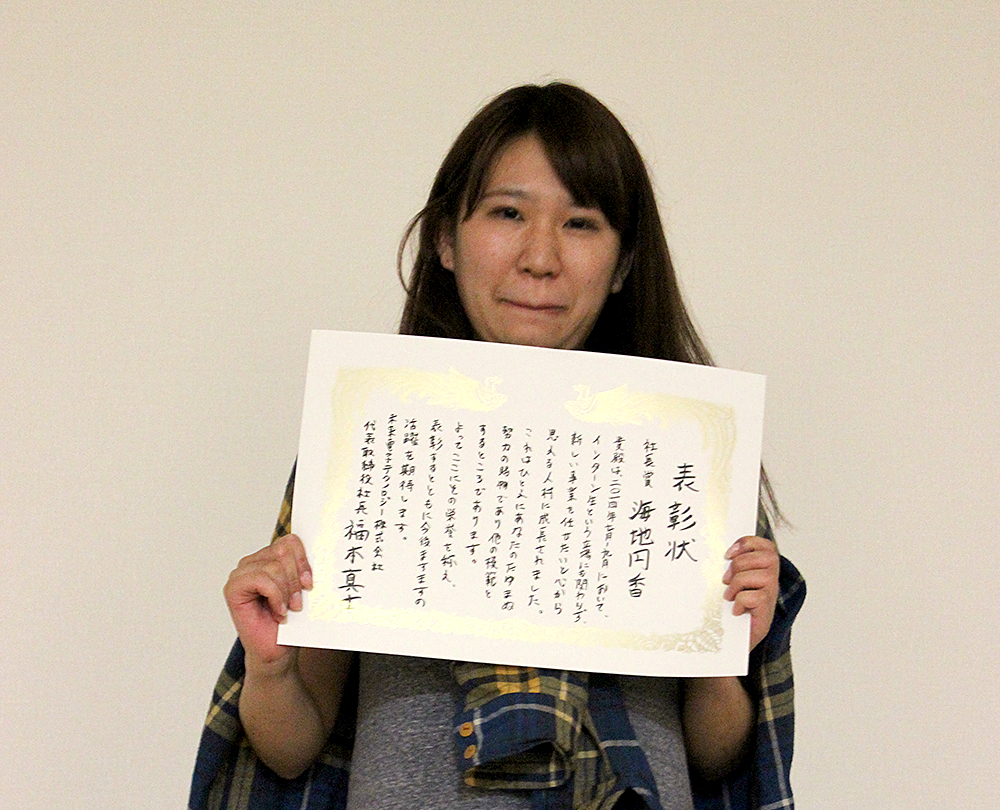 表彰状
社長賞 海地円香
貴殿は、二〇一四年七月〜九月において、
インターン生という立場にも関わらず、
新しい事業を任せたいと心から
思える人材に成長されました。
これはひとえにあなたのたゆまぬ
努力の賜物であり他の模範と
するところであります。
よってここにその栄誉を称え、
表彰するとともに今後ますますの
活躍を期待します。
未来電子テクノロジー株式会社
代表取締役社長 福本真士